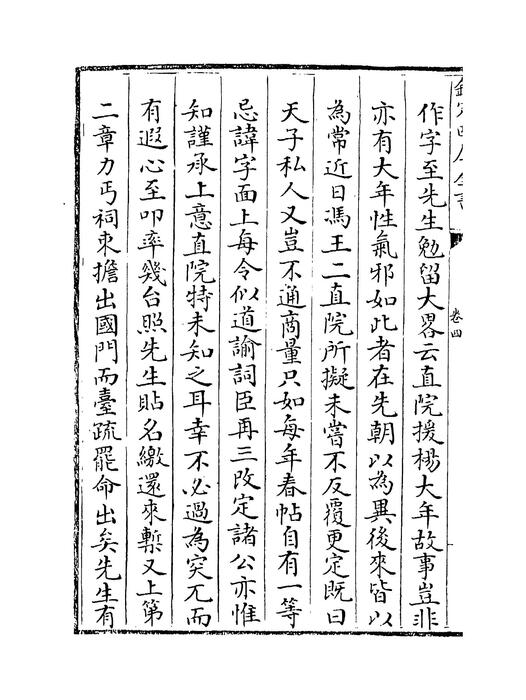 欽定四庫全書
卷四
作字至先生勉留大畧云直院援楊大年故事豈非
亦有大年性氣邪如此者在先朝以為異後來皆以
為常近日馮王二直院所擬未嘗不反覆更定既曰
天子私人又豈不通商量只如每年春帖自有一等
忌諱字面上每令似道諭詞臣再三改定諸公亦惟
知謹承上意直院特未知之耳幸不必過為突兀而
有遐心至叩率幾台照先生貼名繳還來槧又上第
二章力丐祠朿擔出國門而臺疏罷命出矣先生有